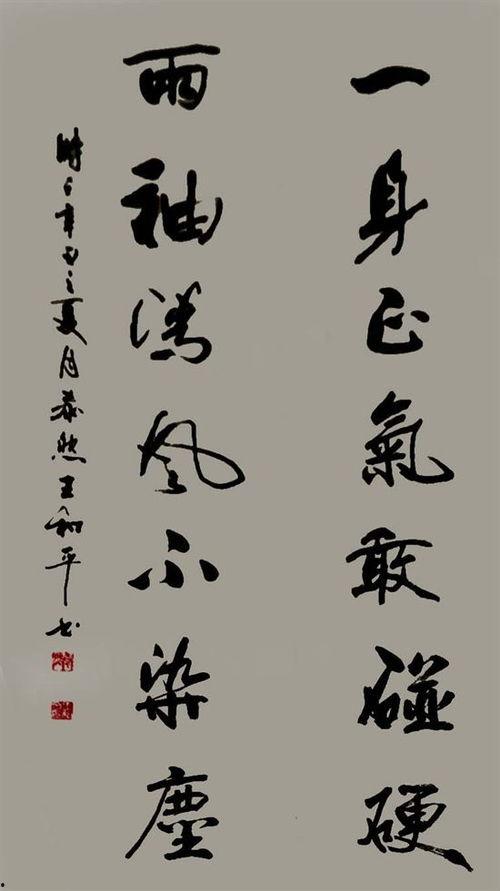 一身正氣敢碰硬
兩袖清风不染塵
时于辛丑之夏月泰然王和平书